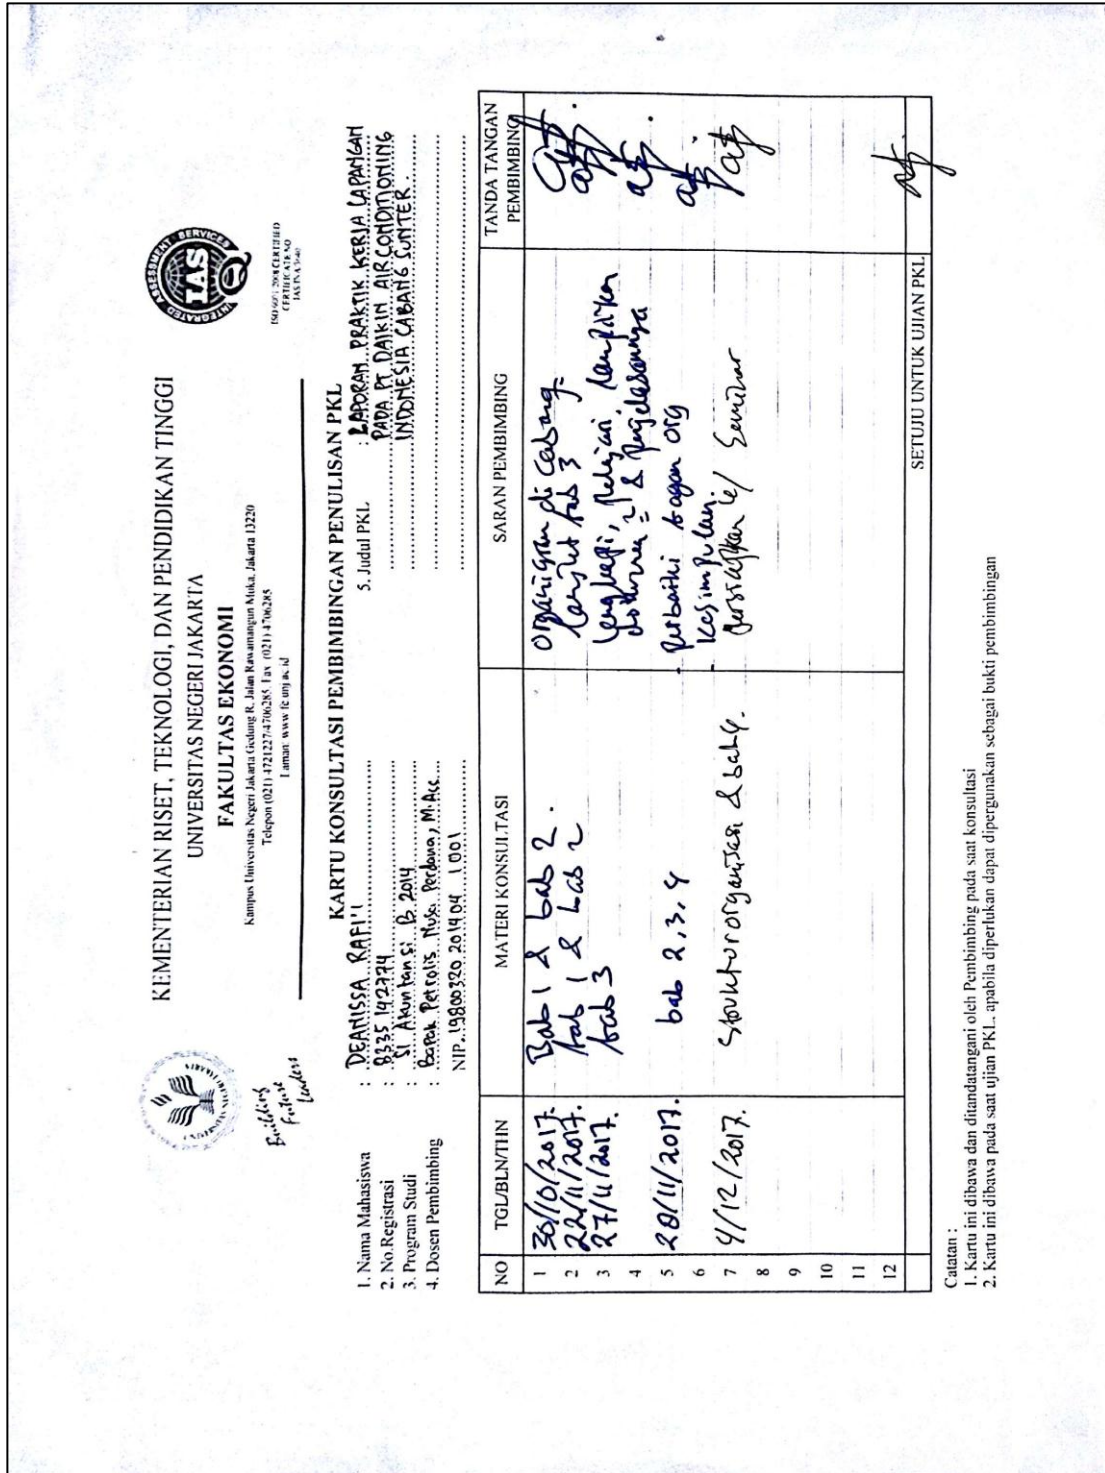 KEMENTERIAN RISET, TEKNOLOGI, DAN PENDIDIKAN TINGGI
UNIVERSITAS NEGERI JAKARTA
FAKULTAS EKONOMI
Kampus Universitas Negeri Jakarta Gedung R, Jalan Rawamangun Muka, Jakarta 13220
Telepon (021) 4721227/4706285, Fax (021) 4706285
Laman: www.fe.unj.ac.id
Building
Future
Leaders
INTEGRATED ASSESSMENT SERVICES
IAS
ISO 9001:2008 CERTIFIED
CERTIFICATE NO
KARTU KONSULTASI PEMBIMBINGAN PENULISAN PKL
1. Nama Mahasiswa : DEANISSA RAFI'I
2. No.Registrasi : 8335142774
3. Program Studi : S1 Akuntansi B 2014
4. Dosen Pembimbing : Bapak Petrolis Nusa Perdana, M.Acc
NIP. 19800320 201404 1 001
5. Judul PKL : LAPORAN PRAKTIK KERJA LAPANGAN
PADA PT DAIKIN AIRCONDITIONING
INDONESIA CABANG SUNTER.
NO TGL/BLN/THN MATERI KONSULTASI SARAN PEMBIMBING TANDA TANGAN PEMBIMBING
1 30/10/2017. Bab 1 & bab 2. organigram di Cabang
2 22/11/2017. bab 1 & bab 2 lanjut bab 3
3 27/11/2017. bab 3 lengkapi, pelajari, lampirkan
4 & penjelasannya
5 28/11/2017. bab 2,3,4 - perbaiki bagan org
6 - kesimpulan.
7 4/12/2017. Struktur organisasi & bab 4. persiapkan u/ Seminar
8
9
10
11
12
SETUJU UNTUK UJIAN PKL
Catatan :
1. Kartu ini dibawa dan ditandatangani oleh Pembimbing pada saat konsultasi
2. Kartu ini dibawa pada saat ujian PKL, apabila diperlukan dapat dipergunakan sebagai bukti pembimbingan